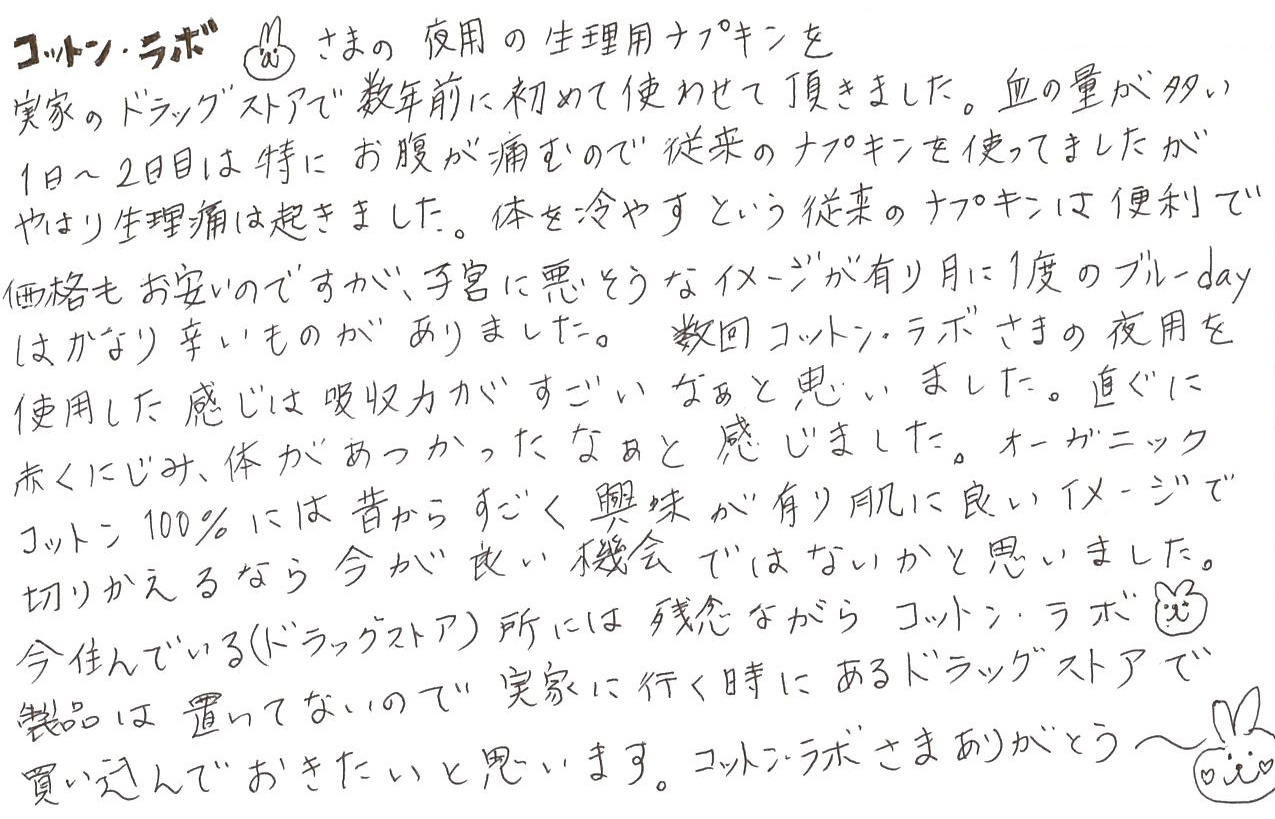 コットン・ラボ さまの 夜用の生理用ナプキンを
実家のドラッグストアで数年前に初めて使わせて頂きました。血の量が多い
1日～2日目は特にお腹が痛むので従来のナプキンを使ってましたが
やはり生理痛は起きました。体を冷やすという従来のナプキンは便利で
価格もお安いのですが、子宮に悪そうなイメージが有り月に1度のブルーday
はかなり辛いものがありました。 数回コットン・ラボさまの夜用を
使用した感じは吸収力がすごいなぁと思いました。直ぐに
赤くにじみ、体があつかったなぁと感じました。オーガニック
コットン100%には昔からすごく興味が有り肌に良いイメージで
切りかえるなら今が良い機会ではないかと思いました。
今住んでいる(ドラッグストア)所には残念ながらコットン・ラボ
製品は置いてないので実家に行く時にあるドラッグストアで
買い込んでおきたいと思います。コットン・ラボさまありがとう～